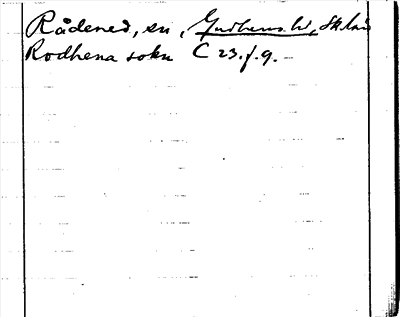 Rådened, sn, Gudhems hd, Sk. län
Rodhena sokn C 23. f. 9. –